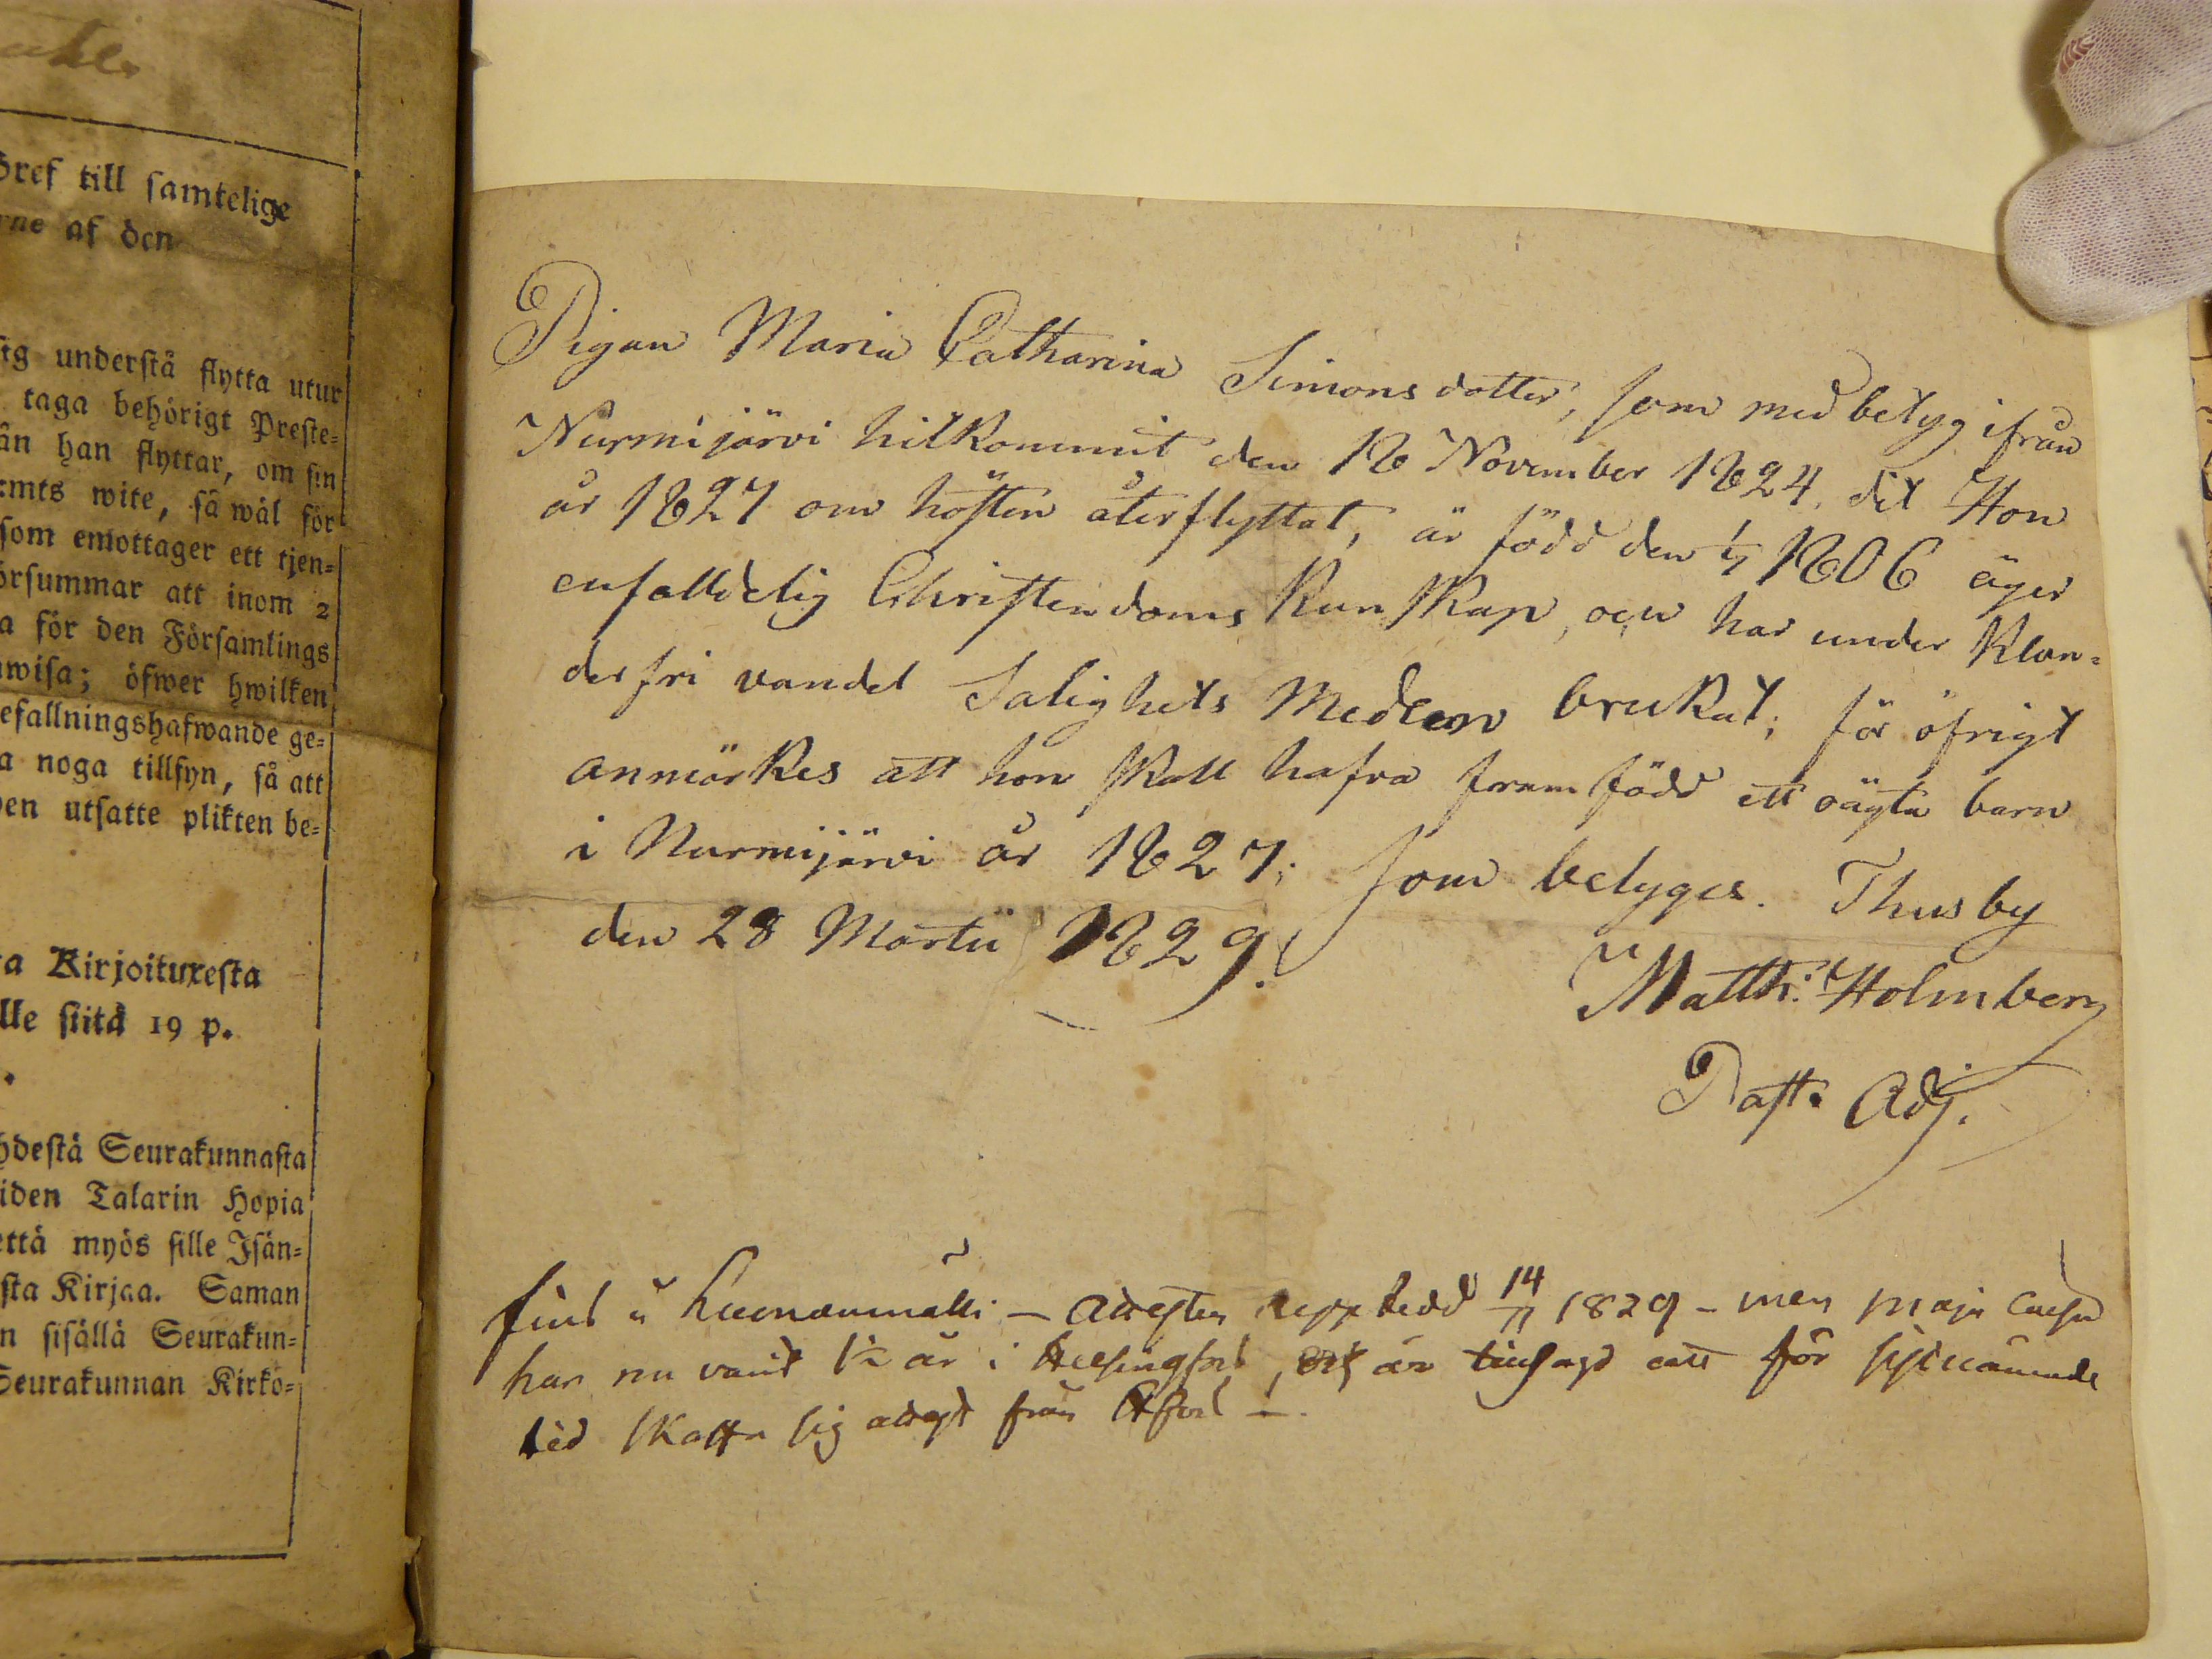 Bref till samtelige
rne af den
sig understå flytta utur
taga behörigt Preste=
ån han flyttar, om sin
emts wite, så wäl för
som emottager ett tjen=
örsummar att inom 2
a för den Församlings
wisa; öfwer hwilken
efallningshafwande ge=
a noga tillsyn, så att
den utsatte plikten be=
a Kirjoituxesta
lle siitä 19 p.
hdestä Seurakunnasta
iden Talarin Hopia
että myös sille Isän=
sta Kirjaa. Saman
n sisällä Seurakun=
Seurakunnan Kirko=
Pigan Maria Catharina Simonsdotter, som med betyg ifrån
Nurmijärvi hitkommit den 18 November 1824, dit Hon
år 1827 om hösten återflyttat, är född den 1/7 1806 äger
enfalldelig Christendoms Kunskap, och har under Klan=
derfri vandel Salighets Medlen brukat; för öfrigt
anmärkes att hon skall hafva framfödd ett oägta barn
i Nurmijärvi år 1827; som betyges. Thusby
den 28 Martii 1829.
Matth: Holmberg
Past. Adj.
- Attesten uppvedd 14 1829 - men
har nu varit 1/2 år i Helsingfors, och är tillsagd att för
tid skaffa sig attest från Hfors -.